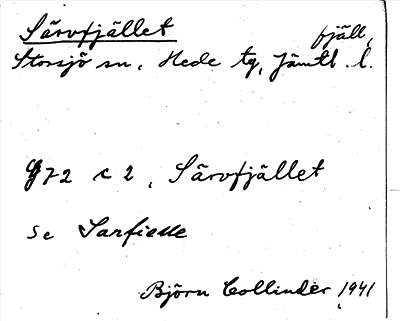 Särvfjället fjäll,
Storsjö sn, Hede tg, Jämtl. l.
G72 c 2, Särvfjället
se Sarfielle
Björn Collinder 1941